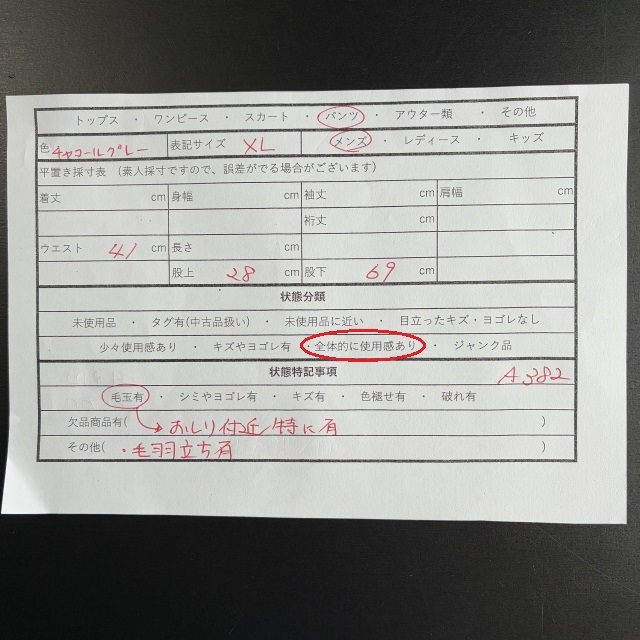 トップス ・ ワンピース ・ スカート ・ パンツ ・ アウター類 ・ その他
色 チャコールグレー 表記サイズ XL メンズ ・ レディース ・ キッズ
平置き採寸表 (素人採寸ですので、誤差がでる場合がございます)
着丈 cm 身幅 cm 袖丈 cm 肩幅 cm
裄丈 cm
ウエスト 41 cm 長さ cm
股上 28 cm 股下 69 cm
状態分類
未使用品 ・ タグ有(中古品扱い) ・ 未使用品に近い ・ 目立ったキズ・ヨゴレなし
少々使用感あり ・ キズやヨゴレ有 ・ 全体的に使用感あり ・ ジャンク品
状態特記事項 A382
毛玉有 ・ シミやヨゴレ有 ・ キズ有 ・ 色褪せ有 ・ 破れ有
欠品商品有( おしり付近特に有 )
その他( ・毛羽立ち有 )